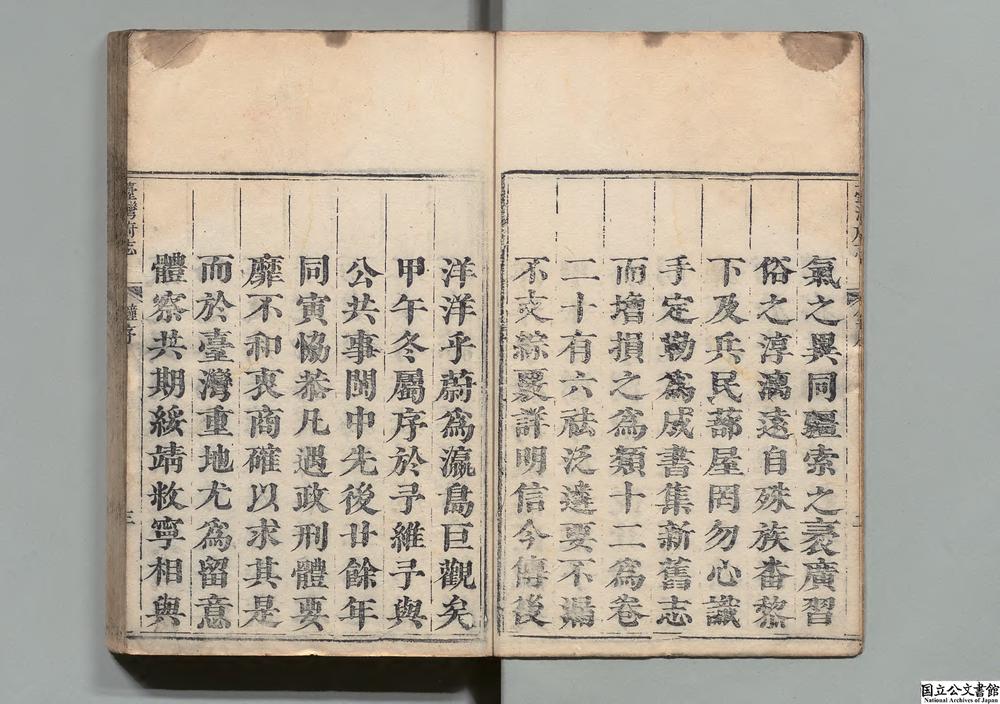 氣之異同疆索之袤廣習
俗之淳漓遠自殊族畨黎
下及兵民蔀屋罔勿心識
手定勒爲成書集新舊志
而增損之爲類十二爲卷
二十有六祛泛遠要不漏
不支綜覈詳明信今傳後
洋洋乎蔚爲瀛島巨觀矣
甲午冬屬序於予維予與
公共事閩中先後廿餘年
同寅恊恭凡遇政刑體要
靡不和衷商確以求其是
而於臺灣重地尤爲留意
體察共期綏靖敉寧相與
臺灣府志
序
三
国立公文書館
National Archives of Japan